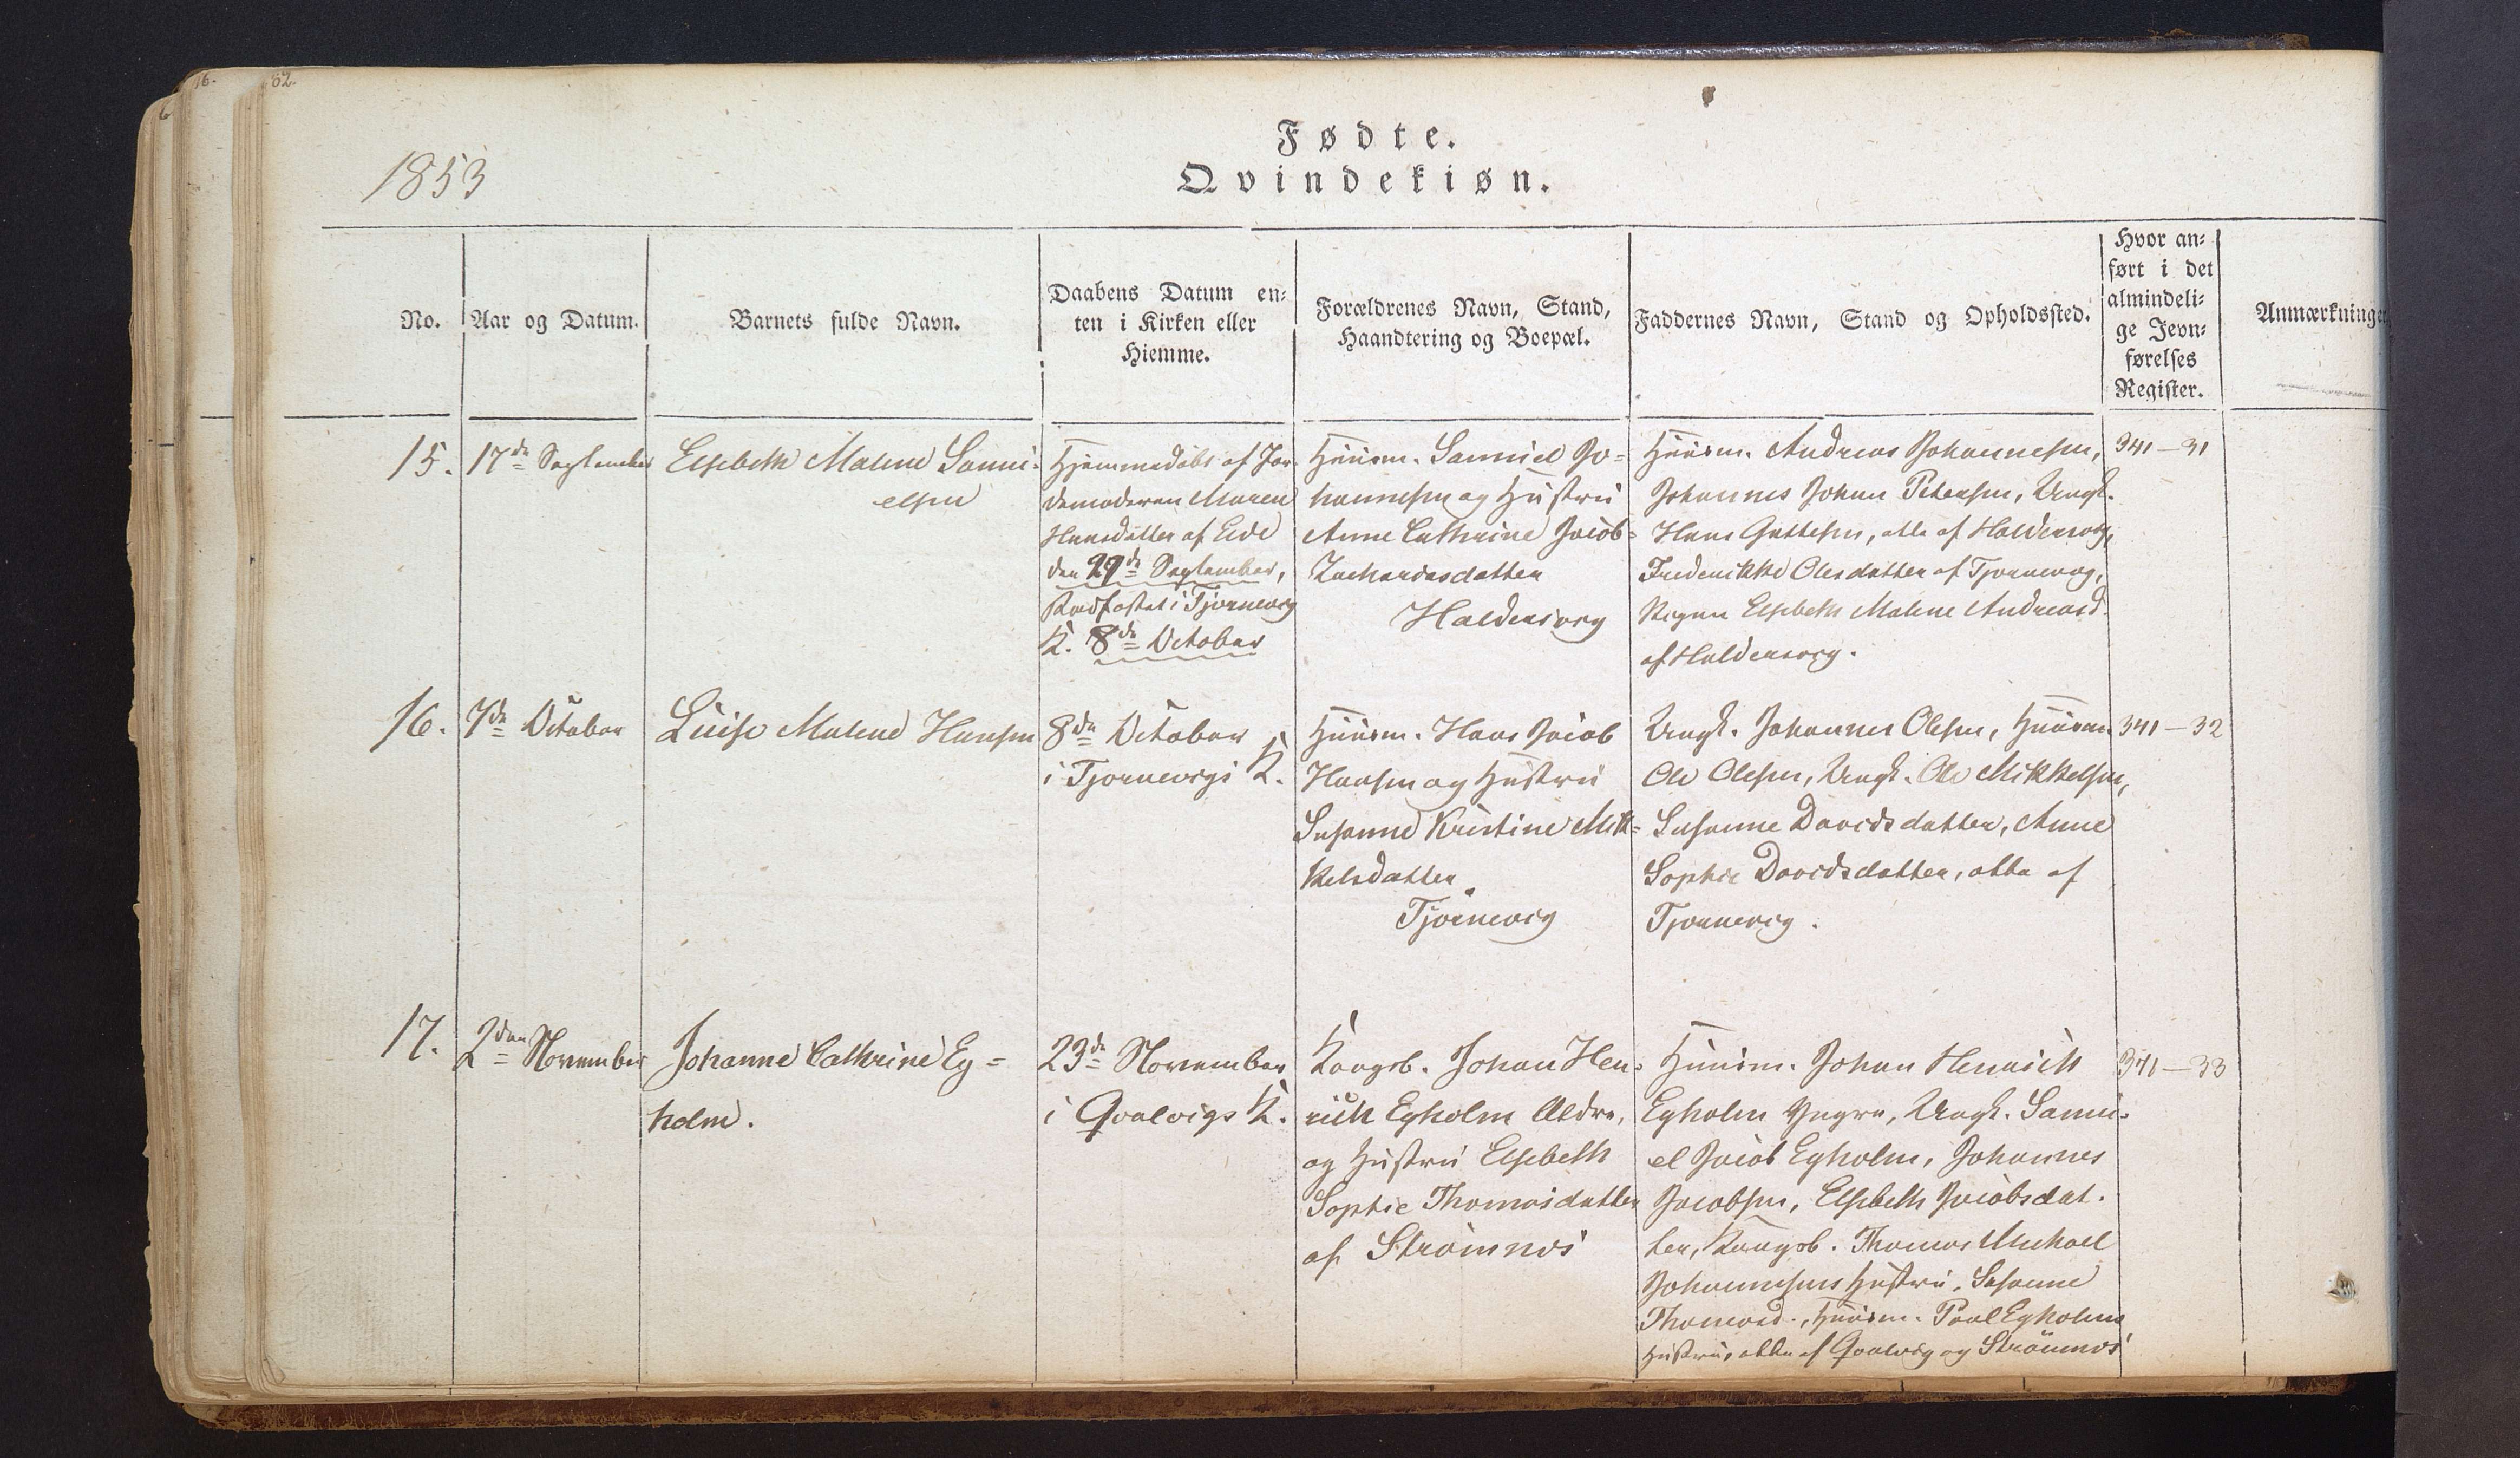 16.
82.
1853
Fødte.
Qvindekiøn.
No.
Aar og Datum.
Barnets fulde Navn.
Daabens Datum en-
ten i Kirken eller
Hiemme.
Forældrenes Navn, Stand,
Haandtering og Boepæl.
Faddernes Navn, Stand og Opholdssted.
Hvor an-
ført i det
almindeli-
ge Jevn-
førelses
Register.
Anmærkninge
15.
17de September
Elsebeth Malene Samu-
elsen
Hjemmedøbt af Jor-
demoderen Maren
Hansdatter af Eide
den 29de September,
Stadfæstet i Tjørnevig
K. 8de October
Huusm. Samuel Jo-
hannesen og Hustru
Anne Cathrine Jacob-
Zachariasdatter
Haldersvig
Huusm. Andreas Johannesen,
Johannes Johan Petersen, Ungk.
Hans Guttesen, alle af Haldersvig,
Frederikke Olesdatter af Tjørnevig,
Pigen Elsebeth Malene Andreasd.
af Haldersvig.
341-31
16.
7de October
Luise Malene Hansen
8de October
i Tjørnevigs K.
Huusm. Hans Jacob
Hansen og Hustru
Susanne Kristine Mik-
kelsdatter.
Tjørnevig
Ungk. Johannes Olesen, Huusm.
Ole Olesen, Ungk. Ole Mikkelsen,
Susanne Davidsdatter, Anne
Sophie Davidsdatter, alle af
Tjørnevig.
341-32
17.
2den November
Johanne Cathrine Eg-
holm.
23de November
i Qvalvigs K.
Kongsb. Johan Hen-
rich Egholm Ældre,
og Hustru Elsebeth
Sophie Thomasdatter
af Strømnæs
Huusm. Johan Henrich
Egholm Yngre, Ungk. Samu-
el Jacob Egholm, Johannes
Jacobsen, Elsebeth Jacobsdat-
ter, Kongsb. Thomas Michael
Johannesens Hustru, Susanne
Thomasd., Huusm. Poul Egholms
Hustru, alle af Qvalvig og Strømnæs
341-33